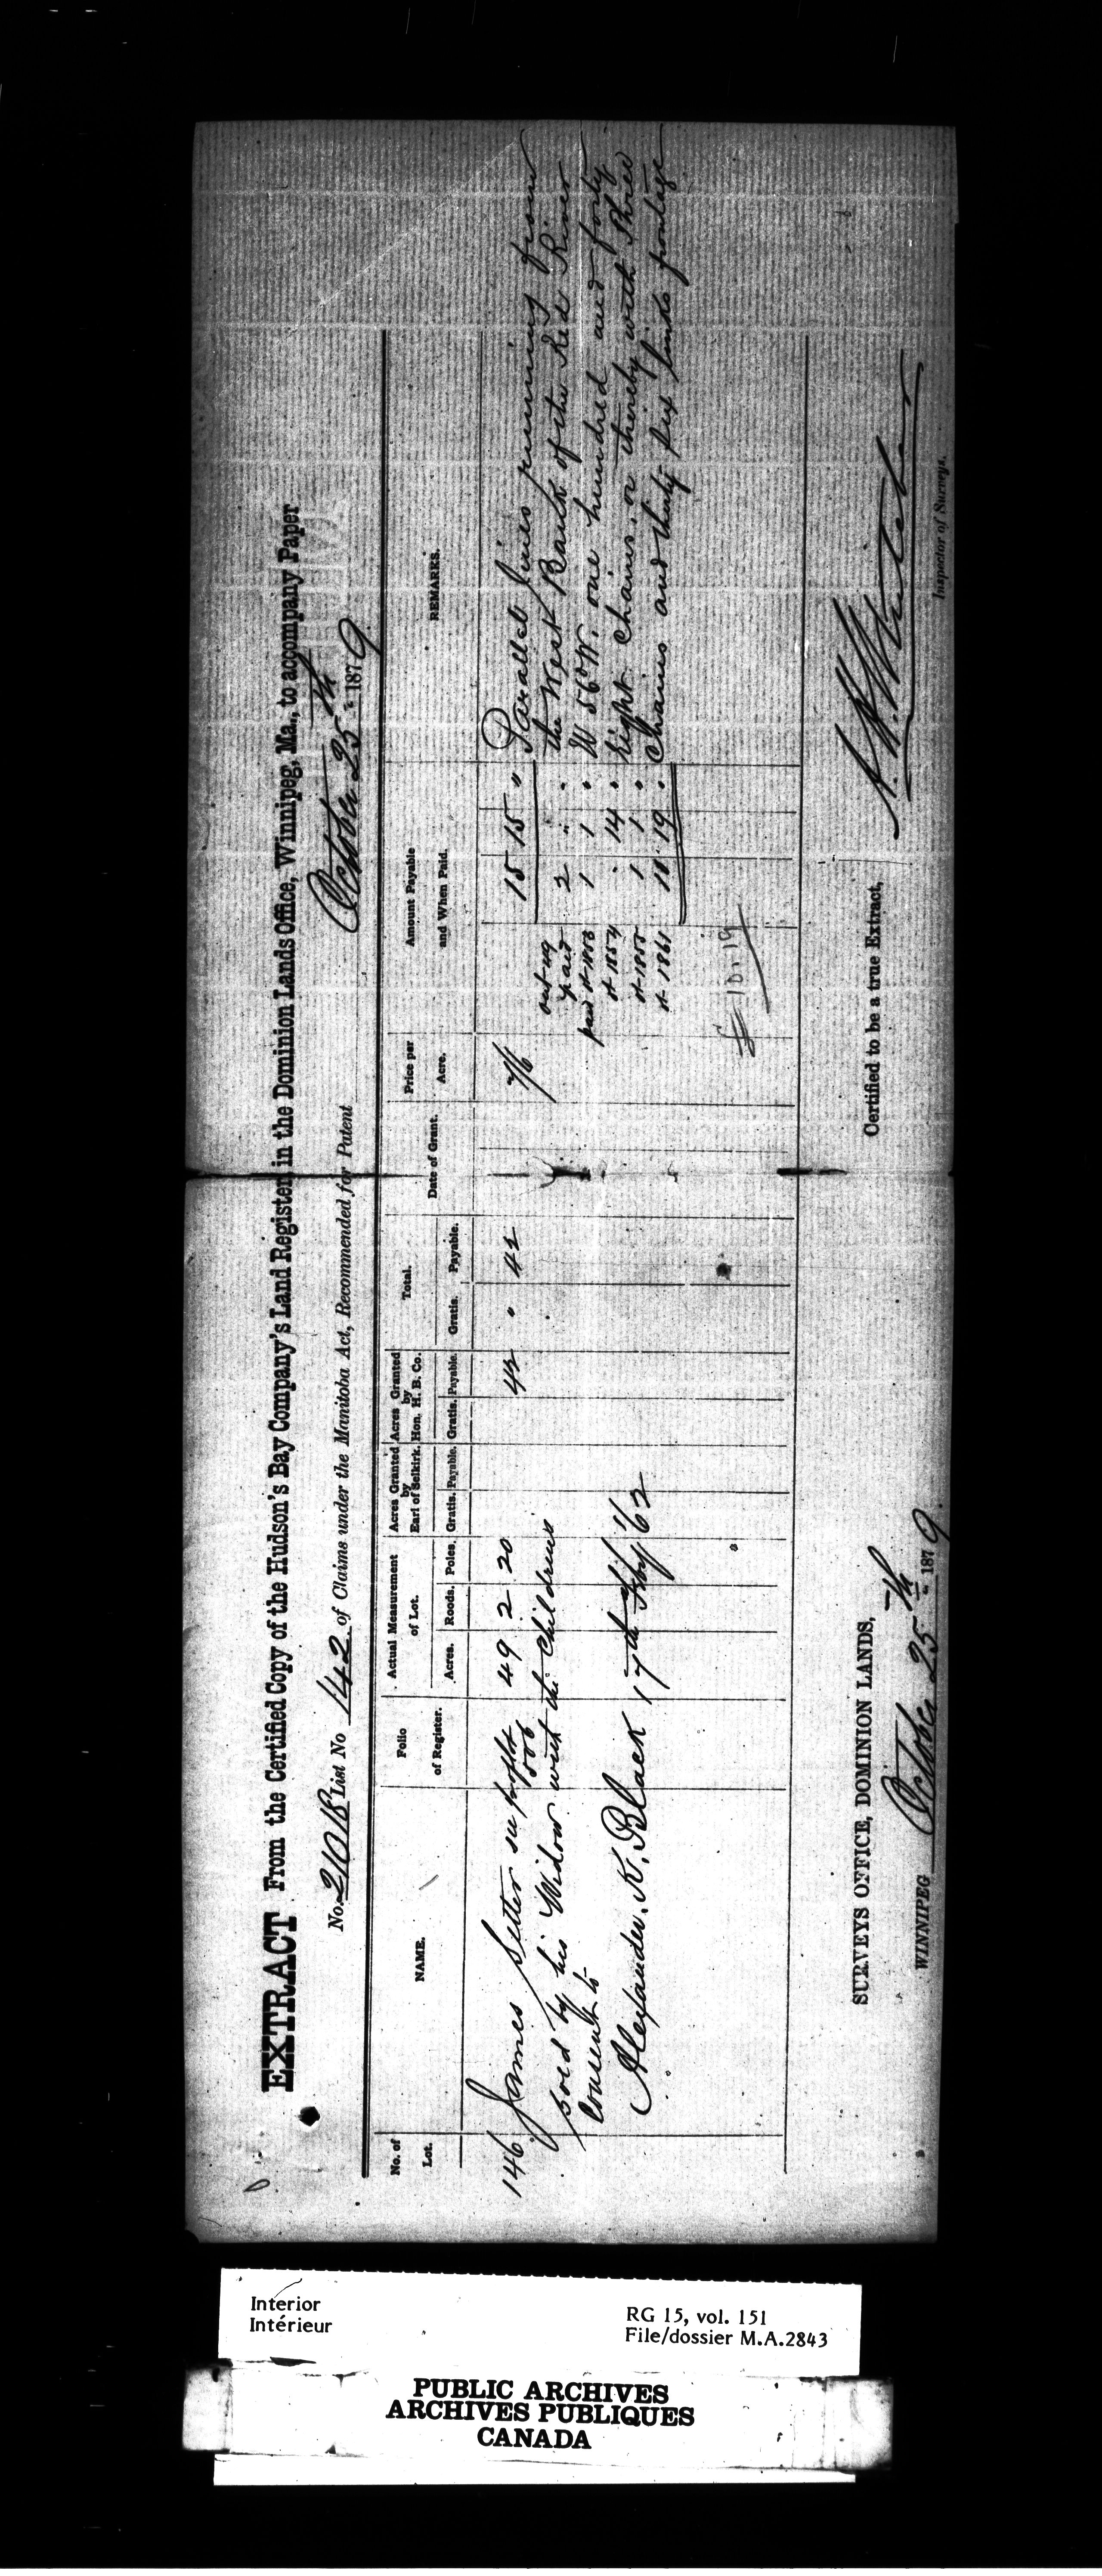 EXTRACT From the Certified Copy of the Hudson's Bay Company's Land Register, in the Dominion Lands Office, Winnipeg, Ma., to accompany Paper
No. 2101 List No 142 of Claims under the Manitoba Act, Recommended for Patent October 25th 1879
No. of Lot. NAME. Folio of Register. Actual Measurement of Lot. Acres Granted by Earl of Selkirk. Acres Granted by Hon. H. B. Co. Total. Date of Grant. Price per Acre. Amount Payable and When Paid. REMARKS.
Acres. Roods. Poles. Gratis. Payable. Gratis. Payable. Gratis. Payable.
146 James Setter 49 2 20 42 " 42 7/6 15 15 " Parallel lines running from
sold by his Widow with the Childrens paid 2 " " the West Bank of the Red River
Consent to paid 1 1 " W 56° W. one hundred and forty
Alexander. K. Black 17th Feby /62 1854 " 14 " Eight Chains, or thereby with Three
1855 1 1 " Chains and thirty six links frontage
1861 10 19 "
10.19
SURVEYS OFFICE, DOMINION LANDS,
WINNIPEG October 25th 1879.
Certified to be a true Extract,
Inspector of Surveys.
Interior
Intérieur
RG 15, vol. 151
File/dossier M.A.2843
PUBLIC ARCHIVES
ARCHIVES PUBLIQUES
CANADA